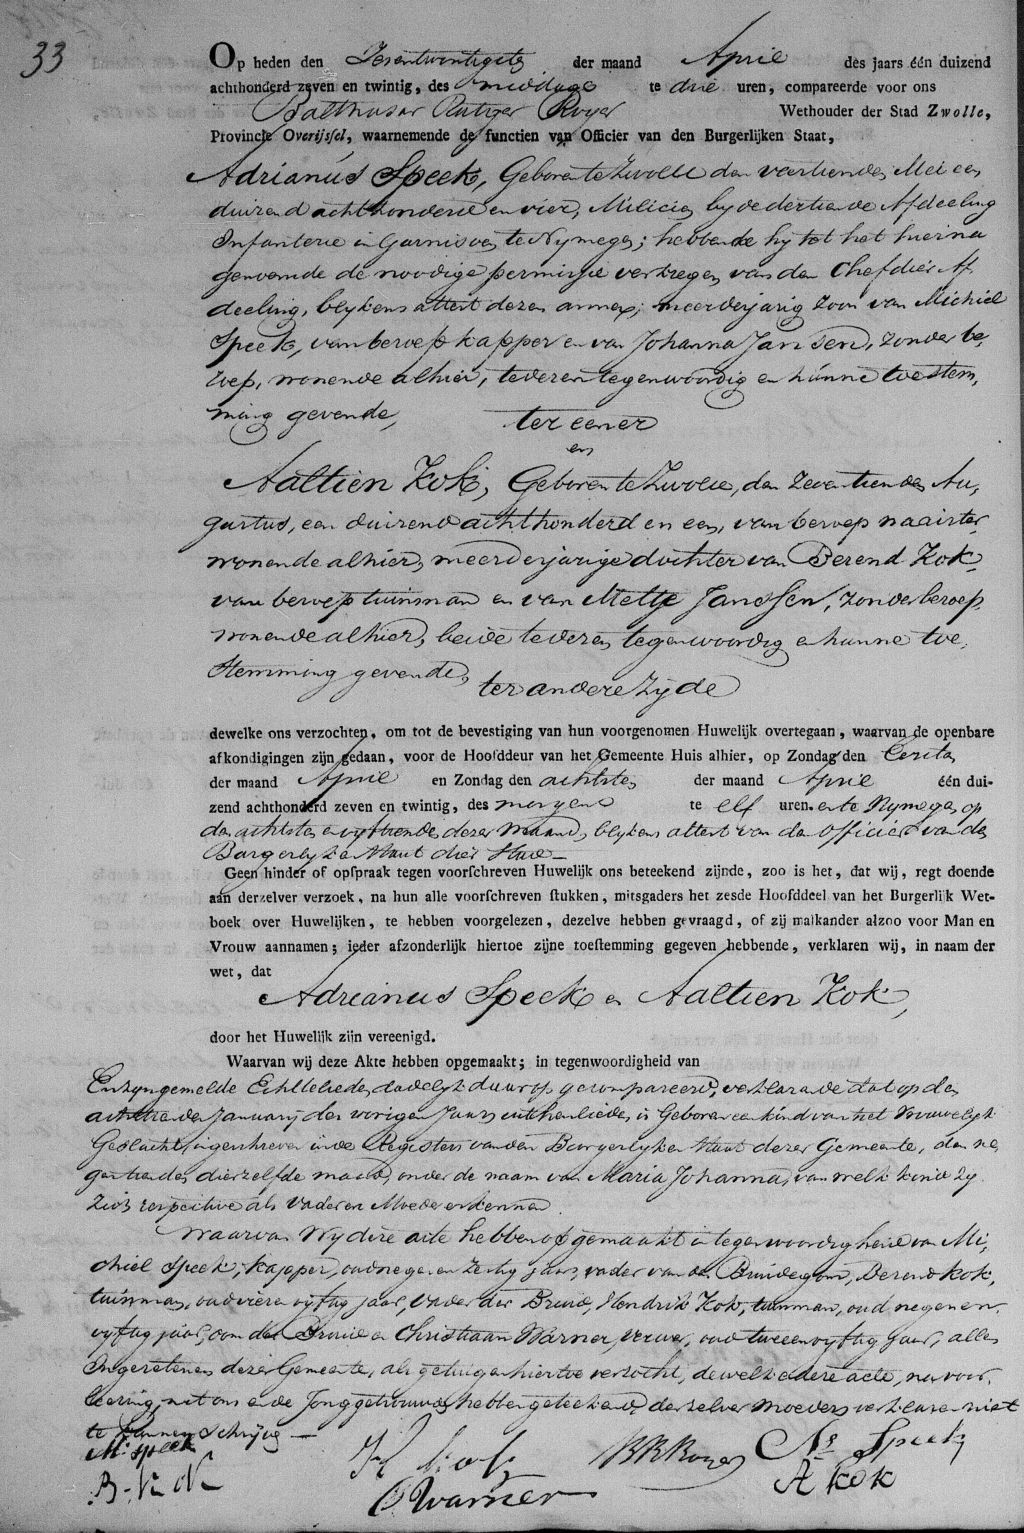 33
Op heden den Zesentwintigste der maand April des jaars één duizend
achthonderd zeven en twintig, des middags te drie uren, compareerde voor ons
Balthasar Rutger Royer Wethouder der Stad Zwolle,
Provincie Overijssel, waarnemende de functien van Officier van den Burgerlijken Staat,
Adrianus Speek, Geboren te Zwolle den veertienden Mei een
duizend achthonderd en vier, Milicien by de dertiende Afdeeling
Infanterie in Garnisoen te Nymegen; hebbende hy tot het hierna
genoemde de noodige permissie verkregen van den Chef dier Af
deeling, blykens attest dezen annex; meerderjarig zoon van Michiel
Speek, van beroep kapper en van Johanna Jansen, zonder be,
roep, wonende alhier, tevens tegenwoordig en hunne toestem,
ming gevende, ter eener
en
Aaltien Kok, Geboren te Zwolle, den zeventienden Au,
gustus, een duizend achthonderd en een, van beroep naaister
wonende alhier, meerderjarige dochter van Berend Kok
van beroep tuinman en van Metje Janssen, zonder beroep
wonende alhier, beide tevens tegenwoordig en hunne toe,
stemming gevende, ter andere zyde
dewelke ons verzochten, om tot de bevestiging van hun voorgenomen Huwelijk overtegaan, waarvan de openbare
afkondigingen zijn gedaan, voor de Hoofddeur van het Gemeente Huis alhier, op Zondag den Eersten
der maand April en Zondag den achtsten der maand April één dui-
zend achthonderd zeven en twintig, des morgens te elf uren. en te Nymegen op
den achtsten en vyftienden dezer maand, blykens attest van den Officier van den
Burgerlyken Staat dier Stad —
Geen hinder of opspraak tegen voorschreven Huwelijk ons beteekend zijnde, zoo is het, dat wij, regt doende
aan derzelver verzoek, na hun alle voorschreven stukken, mitsgaders het zesde Hoofddeel van het Burgerlik Wet-
boek over Huwelijken, te hebben voorgelezen, dezelve hebben gevraagd, of zij malkander alzoo voor Man en
Vrouw aannamen; ieder afzonderlijk hiertoe zijne toestemming gegeven hebbende, verklaren wij, in naam der
wet, dat
Adrianus Speek en Aaltien Kok,
door het Huwelijk zijn vereenigd.
Waarvan wij deze Akte hebben opgemaakt; in tegenwoordigheid van
En zyn gemelde Echtelieden, dadelyk daarop gecompareerd, verklarende dat op den
achttienden January des vorigen Jaars uit hen lieden is Geboren een kind van het Vrouwelyk
Geslacht, ingeschreven in de Registers van den Burgerlyken Staat dezer Gemeente, den ne,
gentienden dierzelfde maand, onder de naam van Maria Johanna, van welk kind zy
zich respective als Vader en Moeder erkennen
Waarvan Wy deze acte hebben opgemaakt in tegenwoordigheid van Mi,
chiel Speek, kapper, oud negen en zestig jaar, vader van den Bruidegom, Berend Kok,
tuinman, oud vier en vyftig jaar, Vader der Bruid, Hendrik Kok, tuinman, oud negen en
vyftig jaar, oom der Bruid en Christiaan Warner, Verwer, oud twee en vyftig jaar, alle
Ingezetenen dezer Gemeente, als getuigen hiertoe verzocht, dewelke deze acte, na voor,
leezing, met ons en de Jonggetrouwden hebben geteekend, derzelver moeders verklaren niet
te kunnen schryven —
M: speek
B. Kok
H Kok
C Warner
BRRoyer
As Speek
A kok